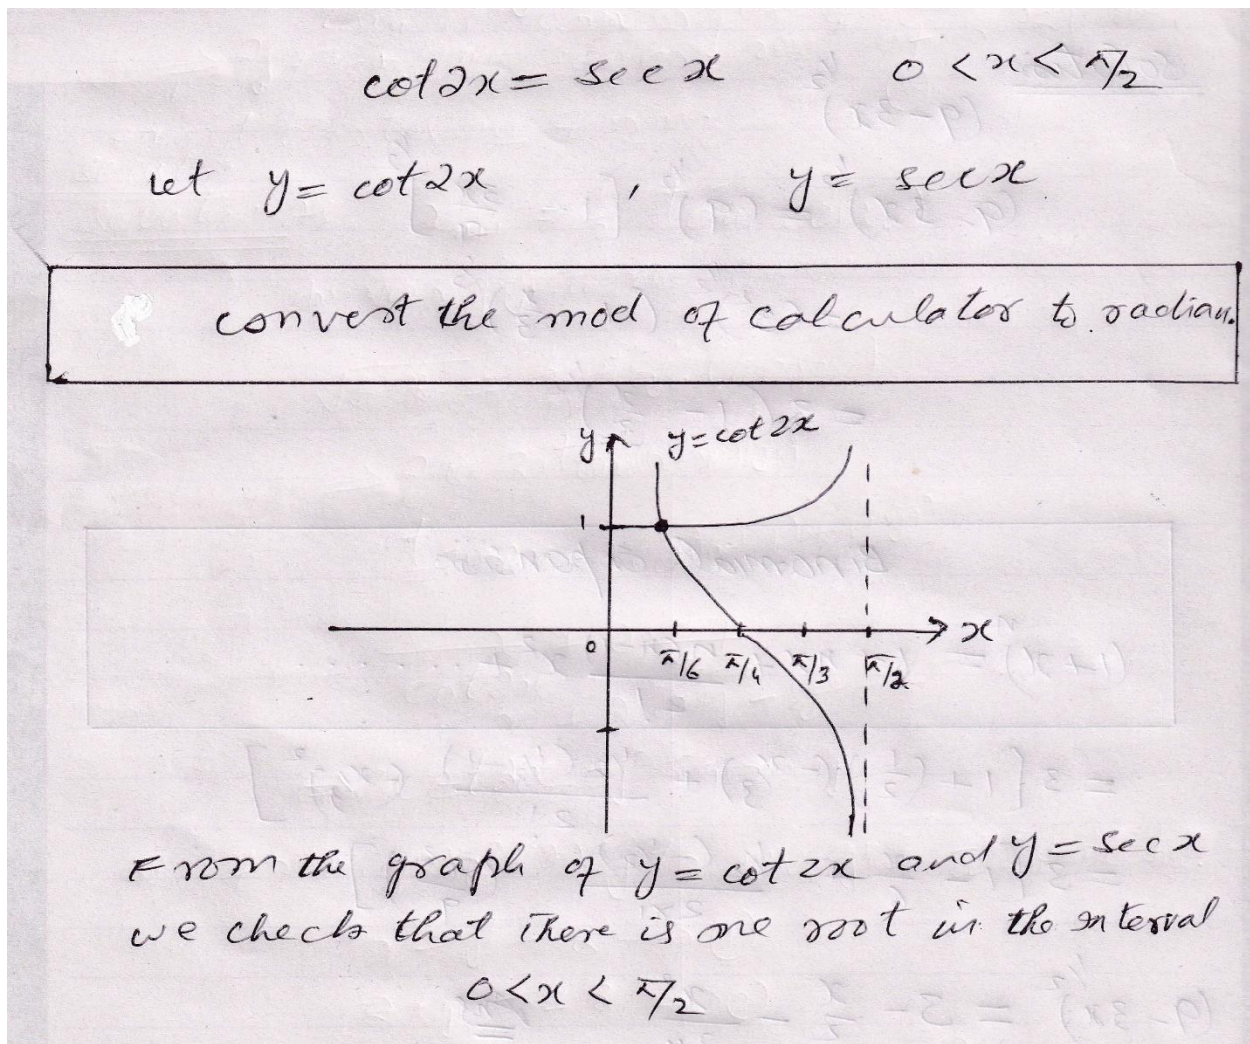 cot2x = secx 0 < x < π/2
let y = cot2x , y = secx
convert the mod of calculator to radian.
y y=cot2x
1
x
0 π/6 π/4 π/3 π/2
From the graph of y = cot2x and y = secx
we check that There is one root in the interval
0 < x < π/2